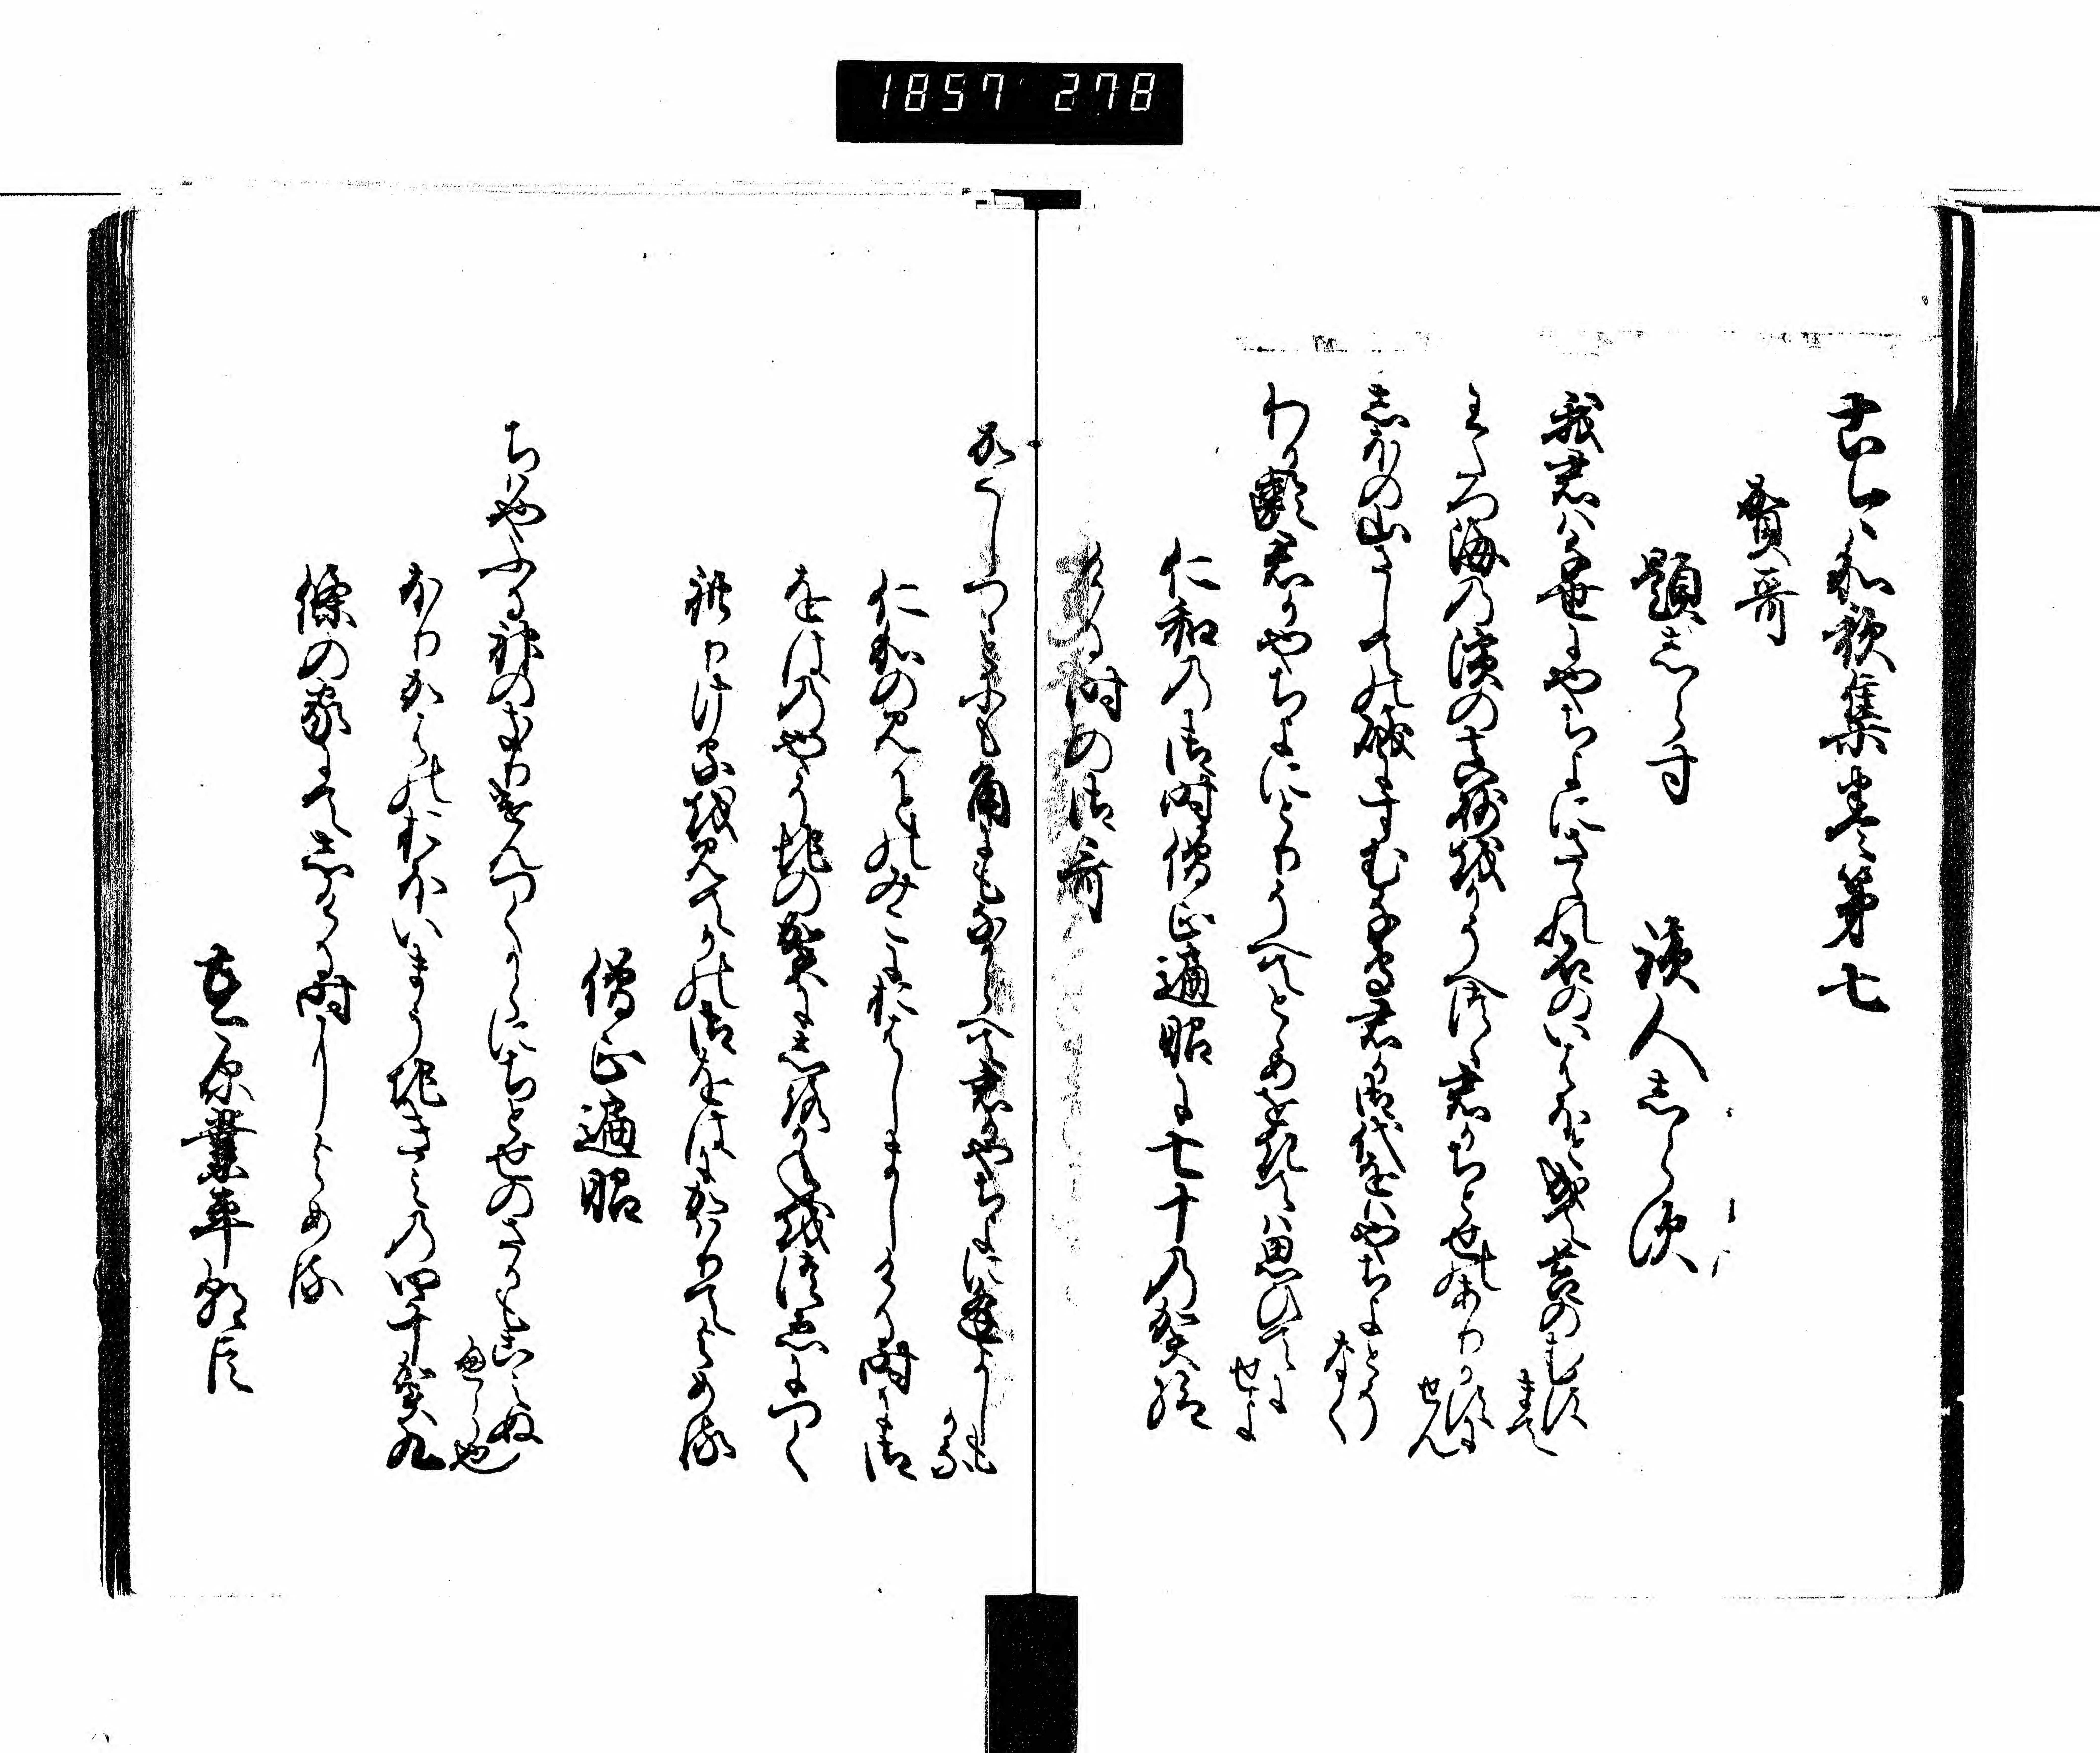 1857 278
古今和歌集巻第七
賀哥
題しらす　読人しらす
我君は千世にやちよにさゝれ石のいはほと成て苔のむす
まて
わたつ海の濱の真砂をかそへつゝ君かちとせのありかすに
せん
しほの山さしての磯にすむ千鳥君か御代をはやちよとそ
なく
わか齢君かやちよにとりそへてとゝめをきては思ひてに
せよ
仁和の御時僧正遍昭に七十の賀給
ける時の御哥
かくしつゝとにもかくにもなからへて君かやちよに逢よしも
かな
仁和のみかとのみこにおはしましける時に御
をはのやそちの賀にしろかねを杖につく
れりけるを見てかの御をはにかはりてよめる
僧正遍昭
ちはやふる神のきりけんつくからにちとせのさかもこえぬ
へら也
ほりかはのおほいまうちきみの四十賀九
條の家にてしける時によめる
在原業平朝臣